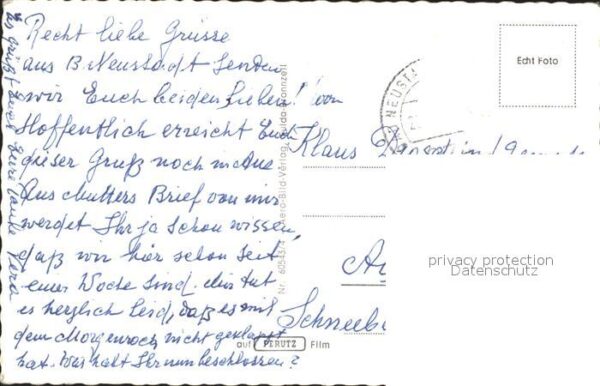 Recht liebe Grüsse
aus B. Neustadt senden
wir Euch beiden Lieben! von
Hoffentlich erreicht Euch
dieser Gruß noch in Aue
Aus Mutters Brief von mir
werdet Ihr ja schon wissen,
daß wir hier schon seit
einer Woche sind. Mir tut
es herzlich leid, daß es mit
dem Morgenrock nicht geklappt
hat. Was habt Ihr nun beschlossen?
Es grüßt Euch Eure Tante
Echt Foto
NEUSTA
Klaus
Schneeb
Nr. Aero-Bild-Verlag, Fulda-Bronnzell
auf PERUTZ Film
privacy protection
Datenschutz